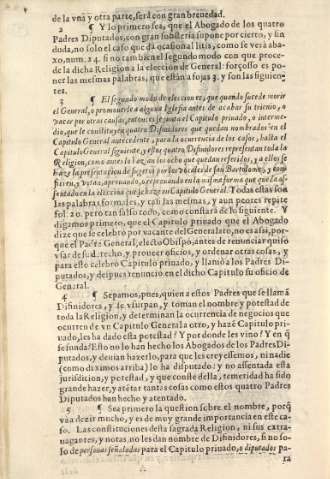 de la vna y otra parte, será con gran breuedad.
2 ¶ Y lo primero sea, que el Abogado de los quatro
Padres Diputados, con gran subtileza supone por cierto, y sin
duda, no solo el caso que da ocasion al litis, como se verá aba-
xo, num. 24. si no tambien el segundo modo con que proce-
de la dicha Religion a la eleccion de General: forçoso es po-
ner las mesmas palabras, que están a fojas 3. y son las siguien-
tes.
3 ¶ El segundo modo de eleccion es, que quando sucede morir
el General, o promouerle a alguna Iglesia antes de acabar su trienio, o
vacar por otras causas, entonces se junta el Capitulo priuado, o interme-
dio, que le constituyen quatro Difinidores que quedan nombrados en el
Capitulo General antecedente, para la ocurrencia de los casos, hasta el
Capitulo General siguiente, y estos quatro Difinidores representan toda la
Religion, como antes lo hazian los ocho que quedan referidos, y a ellos se
haze la
Capitulo General. Todas estas son
las palabras formales, y casi las mesmas, y aun peores repite
fol. 20. pero tan falso es esto, como constará de lo siguiente. Y
digamos primero, que el Capitulo priuado que el Abogado
dize que se celebró por vacante del Generalato, no es así, por-
que el Padre General, electo Obispo, antes de renunciar quiso v-
sar de su derecho, y proueer oficios, y ordenar otras cosas, y
para esto celebró Capitulo priuado, y llamó a los Padres Di-
putados, y despues renunció en el dicho Capitulo su oficio de
General.
4 ¶ Sepamos, pues, quien a estos Padres que se llamã
Difinidores, y se vsurpan, y toman el nombre y potestad de
toda la Religion, y determinan la ocurrencia de negocios que
ocurren de vn Capitulo General a otro, y hazẽ Capitulo pri-
uado, les ha dado esta potestad? Y por donde les vino? Y en q̃
se funda? Esto no lo han hecho los Abogados de los Padres Di-
putados, y deuian hazerlo, para que les creyessemos, ni nadie
(como diximos arriba) lo ha disputado: y no assentada esta
jurisdicion, y potestad, y que conste della, temeridad ha sido
grande hazer, y acetar tantas cosas como estos quatro Padres
Diputados han hecho y atentado.
5 ¶ Sea primero la question sobre el nombre, porq̃
vaa dezir mucho, y es de muy grande importancia en este ca-
so. Las constituciones desta sagrada Religion, ni sus extra-
uagantes, y notas, no les dan nombre de Difinidores, si no so-
lo de personas señaladas para el Capitulo priuado, o diputados pa-
ra